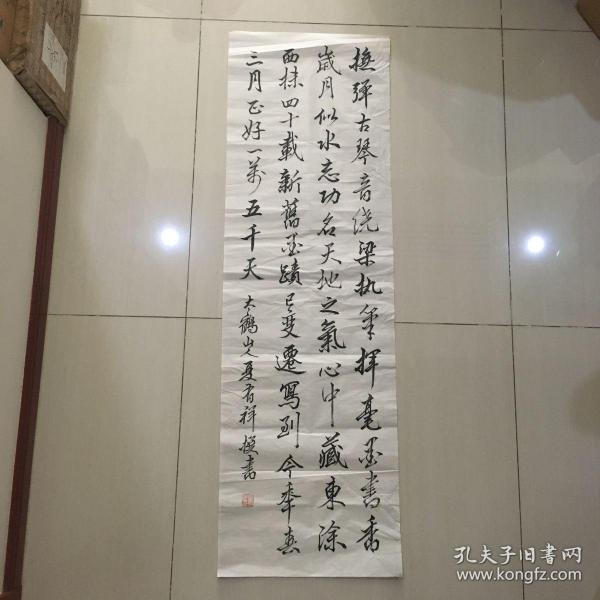 撫弹古琴音绕梁执笔揮毫墨書香
歲月似水志功名天地之氣心中藏東涂
西抹四十載新舊墨蹟已变遷寫到今年春
三月正好一萬五千天
太鶴山人夏有祥撰書
孔夫子旧書网
www.kongfz.com